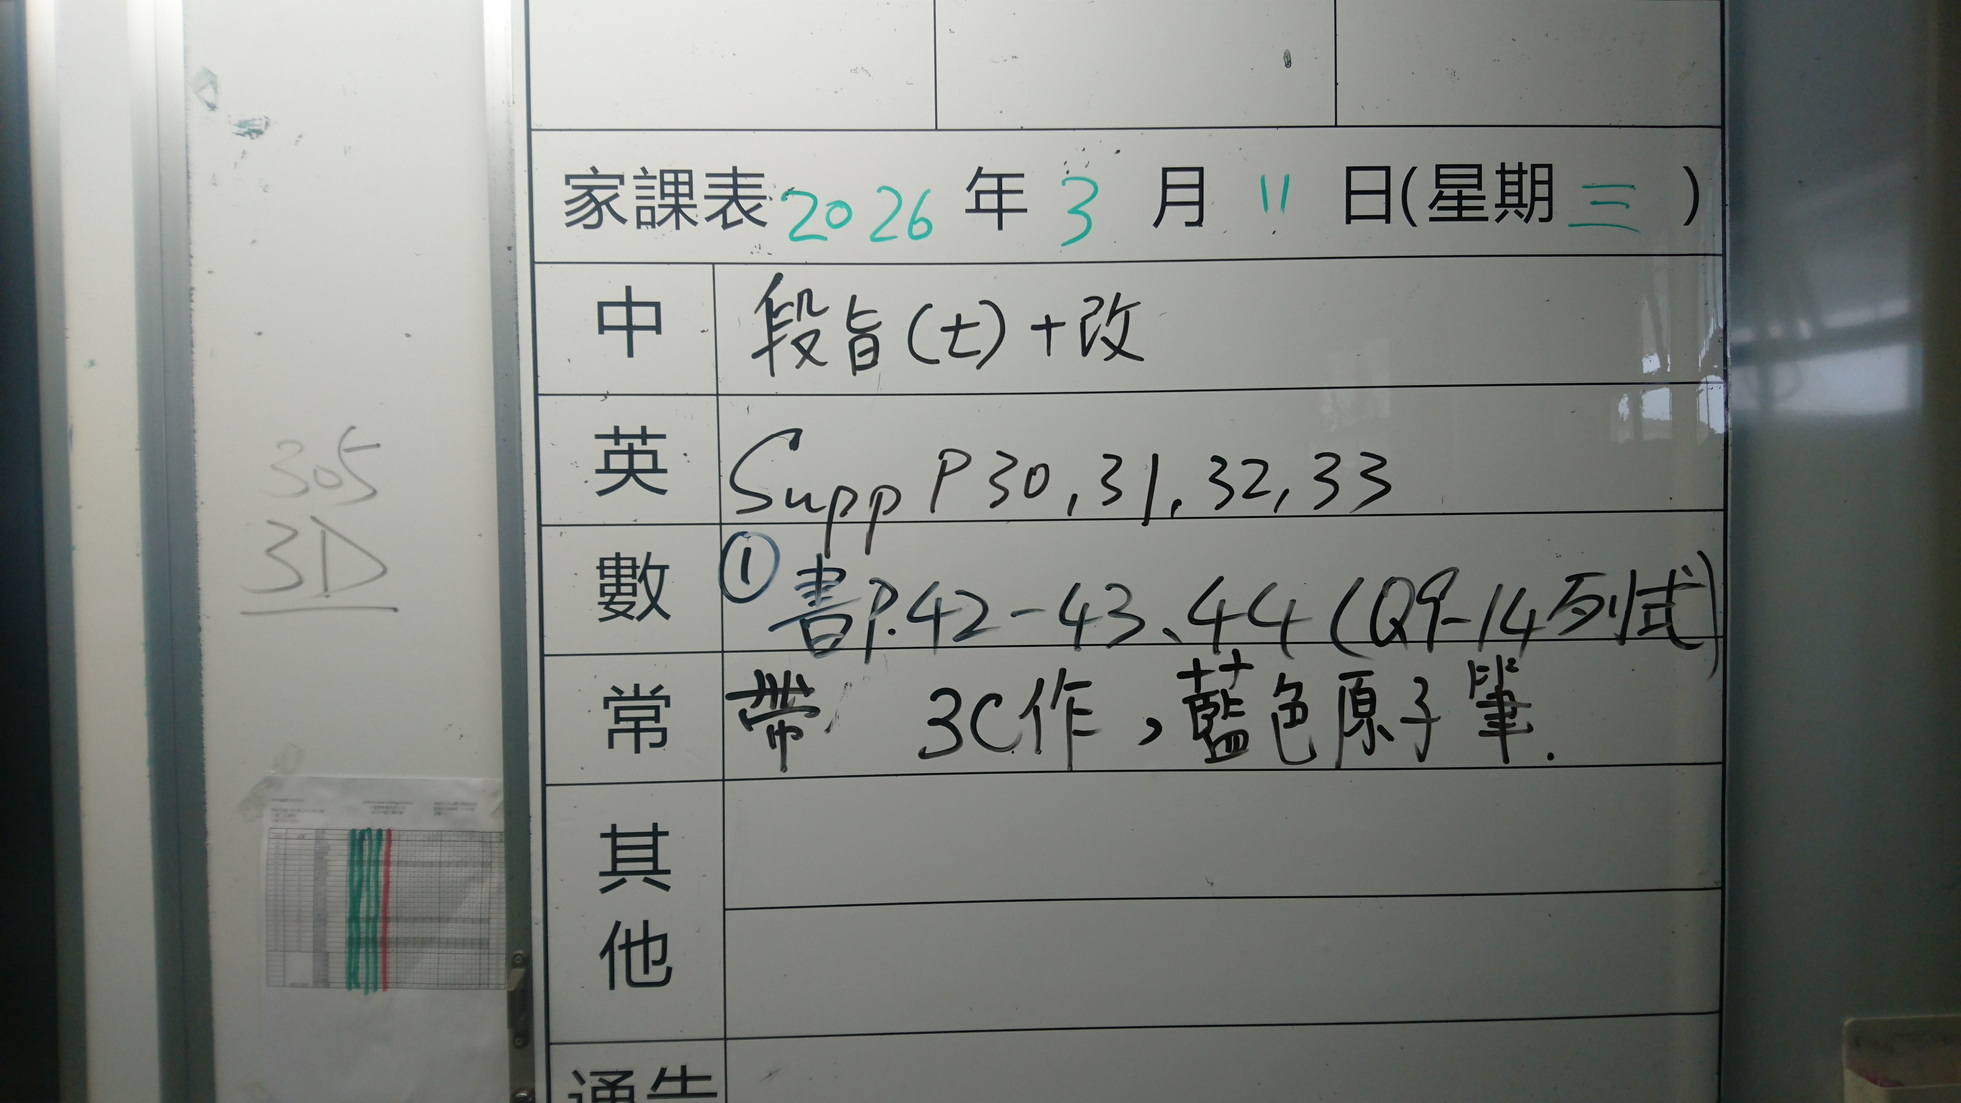 305
3D
家課表2026年3月11日(星期三)
中 段旨(七)+改
英 Supp P30,31,32,33
數 ①書P.42-43、44(Q9-14列式)
常 帶 3C作,藍色原子筆.
其他
通告